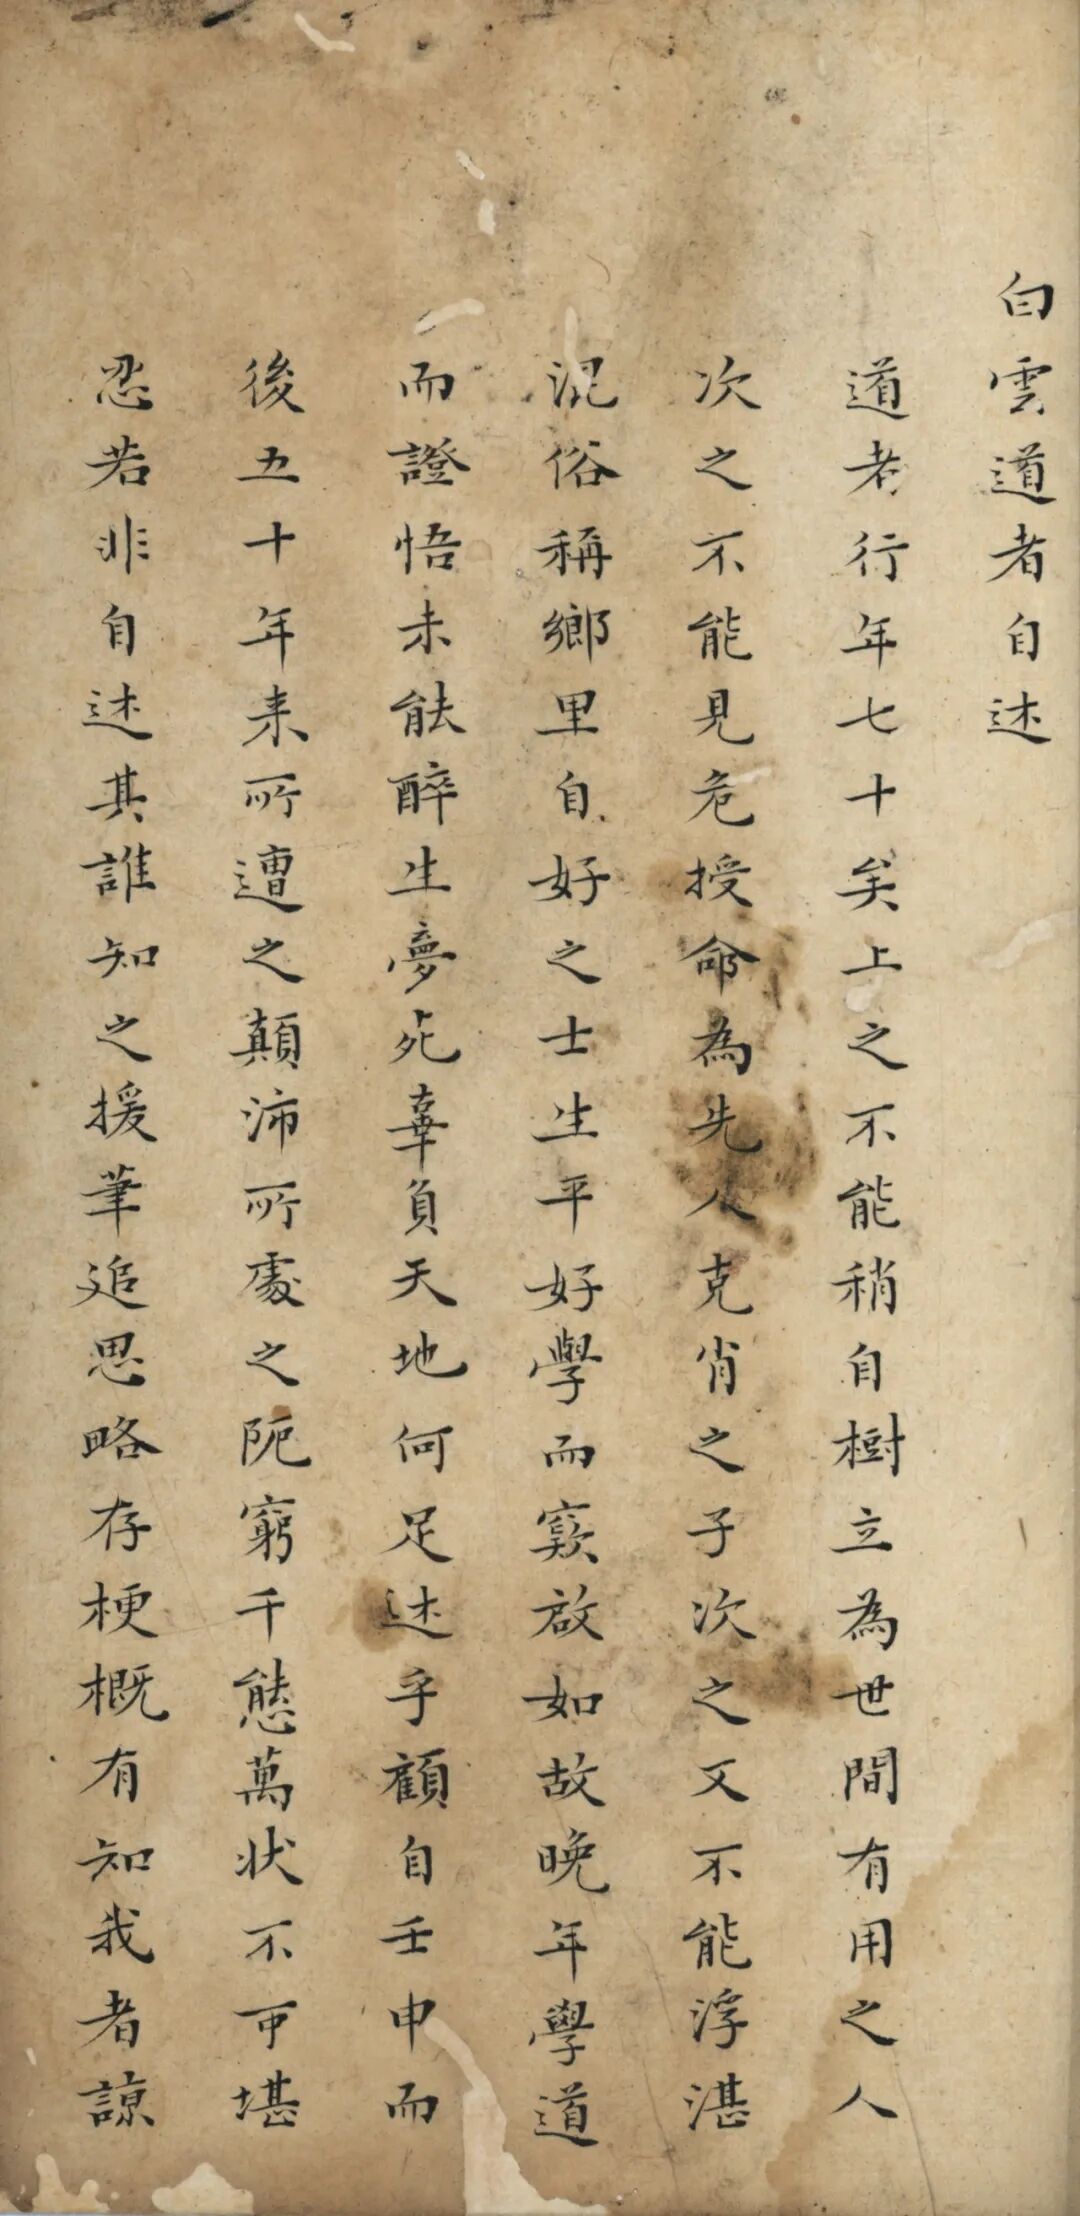 白雲道者自述
道者行年七十矣上之不能稍自樹立為世間有用之人
次之不能見危授命為先人克肖之子次之又不能浮湛
混俗稱鄉里自好之士生平好學而窾啟如故晚年學道
而證悟未能醉生夢死辜負天地何足述乎顧自壬申而
後五十年来所遭之顛沛所處之阨窮千態萬狀不可堪
忍若非自述其誰知之援筆追思略存梗概有知我者諒